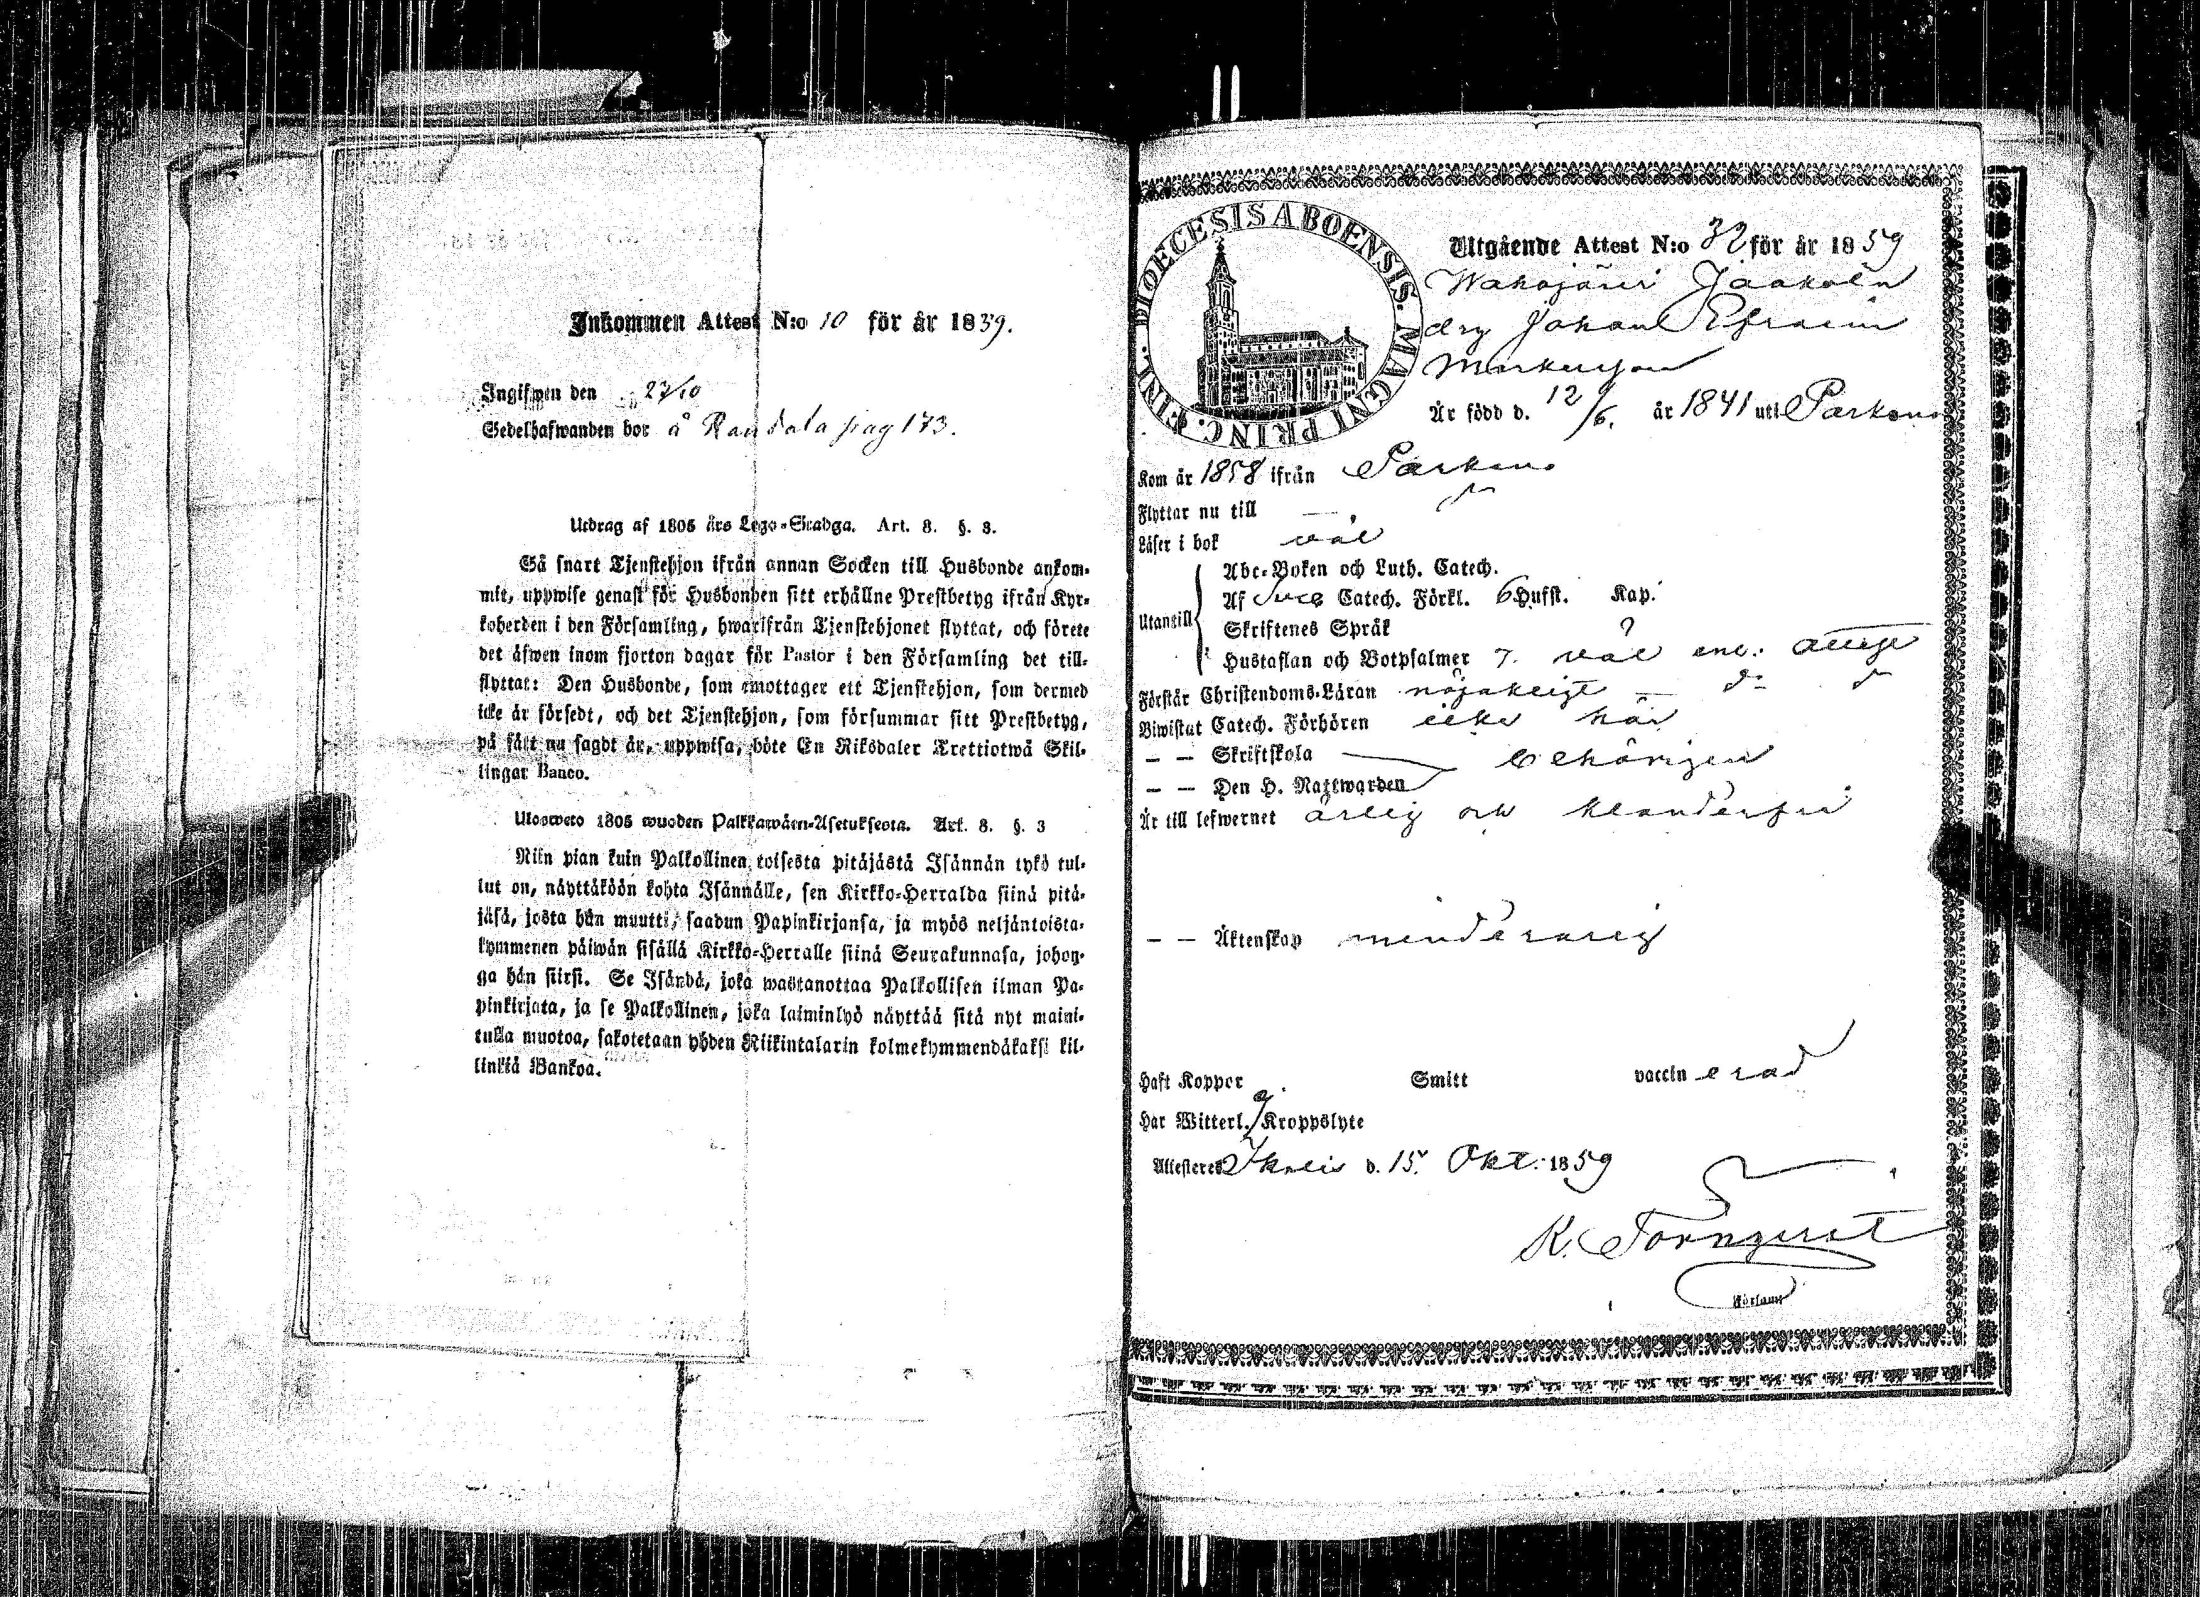 Inkommen Attest N:o 10 för år 1859.
Ingifwen den 27/10
Sedelhafwanden bor å Randala pag 173.
Utdrag af 1805 års Lego-Stadga. Art. 8. §. 3.
Så snart Tjenstehjon ifrån annan Socken till Husbonde ankom-
mit, uppwise genast för Husbonden sitt erhållne Prestbetyg ifrån Kyr-
koherden i den Församling, hwarifrån Tjenstehjonet flyttat, och förete
det äfwen inom fjorton dagar för Pastor i den Församling det till-
flyttat: Den Husbonde, som emottager ett Tjenstehjon, som dermed
icke är försedt, och det Tjenstehjon, som försummar sitt Prestbetyg,
på sätt nu sagdt är, uppwisa, böte En Riksdaler Trettiotwå Skil-
lingar Banco.
Utosweto 1805 wuoden Palkkawäen-Asetuksesta. Art. 8. §. 3
Niin pian kuin Palkollinen toisesta pitäjästä Isännän tykö tul-
lut on, näyttäköön kohta Isännälle, sen Kirkko-Herralda siinä pitä-
jäsä, josta hän muutti, saadun Papinkirjansa, ja myös neljäntoista-
kymmenen päiwän sisällä Kirkko-Herralle siinä Seurakunnasa, johon-
ga hän siirsi. Se Isändä, joka wastanottaa Palkollisen ilman Pa-
pinkirjata, ja se Palkollinen, joka laiminlyö näyttää sitä nyt maini-
tulla muotoa, sakotetaan yhden Riikintalarin kolmekymmendäkaksi kil-
linkiä Bankoa.
DIOECESIS ABOENSIS. MAGNI PRINC. FINL.
Utgående Attest N:o 32 för år 1859
Wahojärvi Jaakola
drg Johan Efraim
Markusson
Är född d. 12/6. år 1841 uti Parkano
Kom år 1858 ifrån Parkano
Flyttar nu till
Läser i bok väl
Abc-Boken och Luth. Catech.
Utantill
Af Sveb Catech. Förkl. 6 Hufst. Kap.
Skriftenes Språk
Hustaflan och Botpsalmer 7. väl enl. attest
Förstår Christendoms-Läran nöjaktigt
Biwistat Catech. Förhören icke här
– – Skriftskola behörigen
– – Den H. Nattwarden
Är till lefwernet ärlig och klanderfri
– – Äktenskap minderårig
Haft Koppor Smitt vaccin erad
Har Witterl. ej Kroppslyte
Attesteres Ikalis d. 15. Okt. 1859
K. Törnqvist